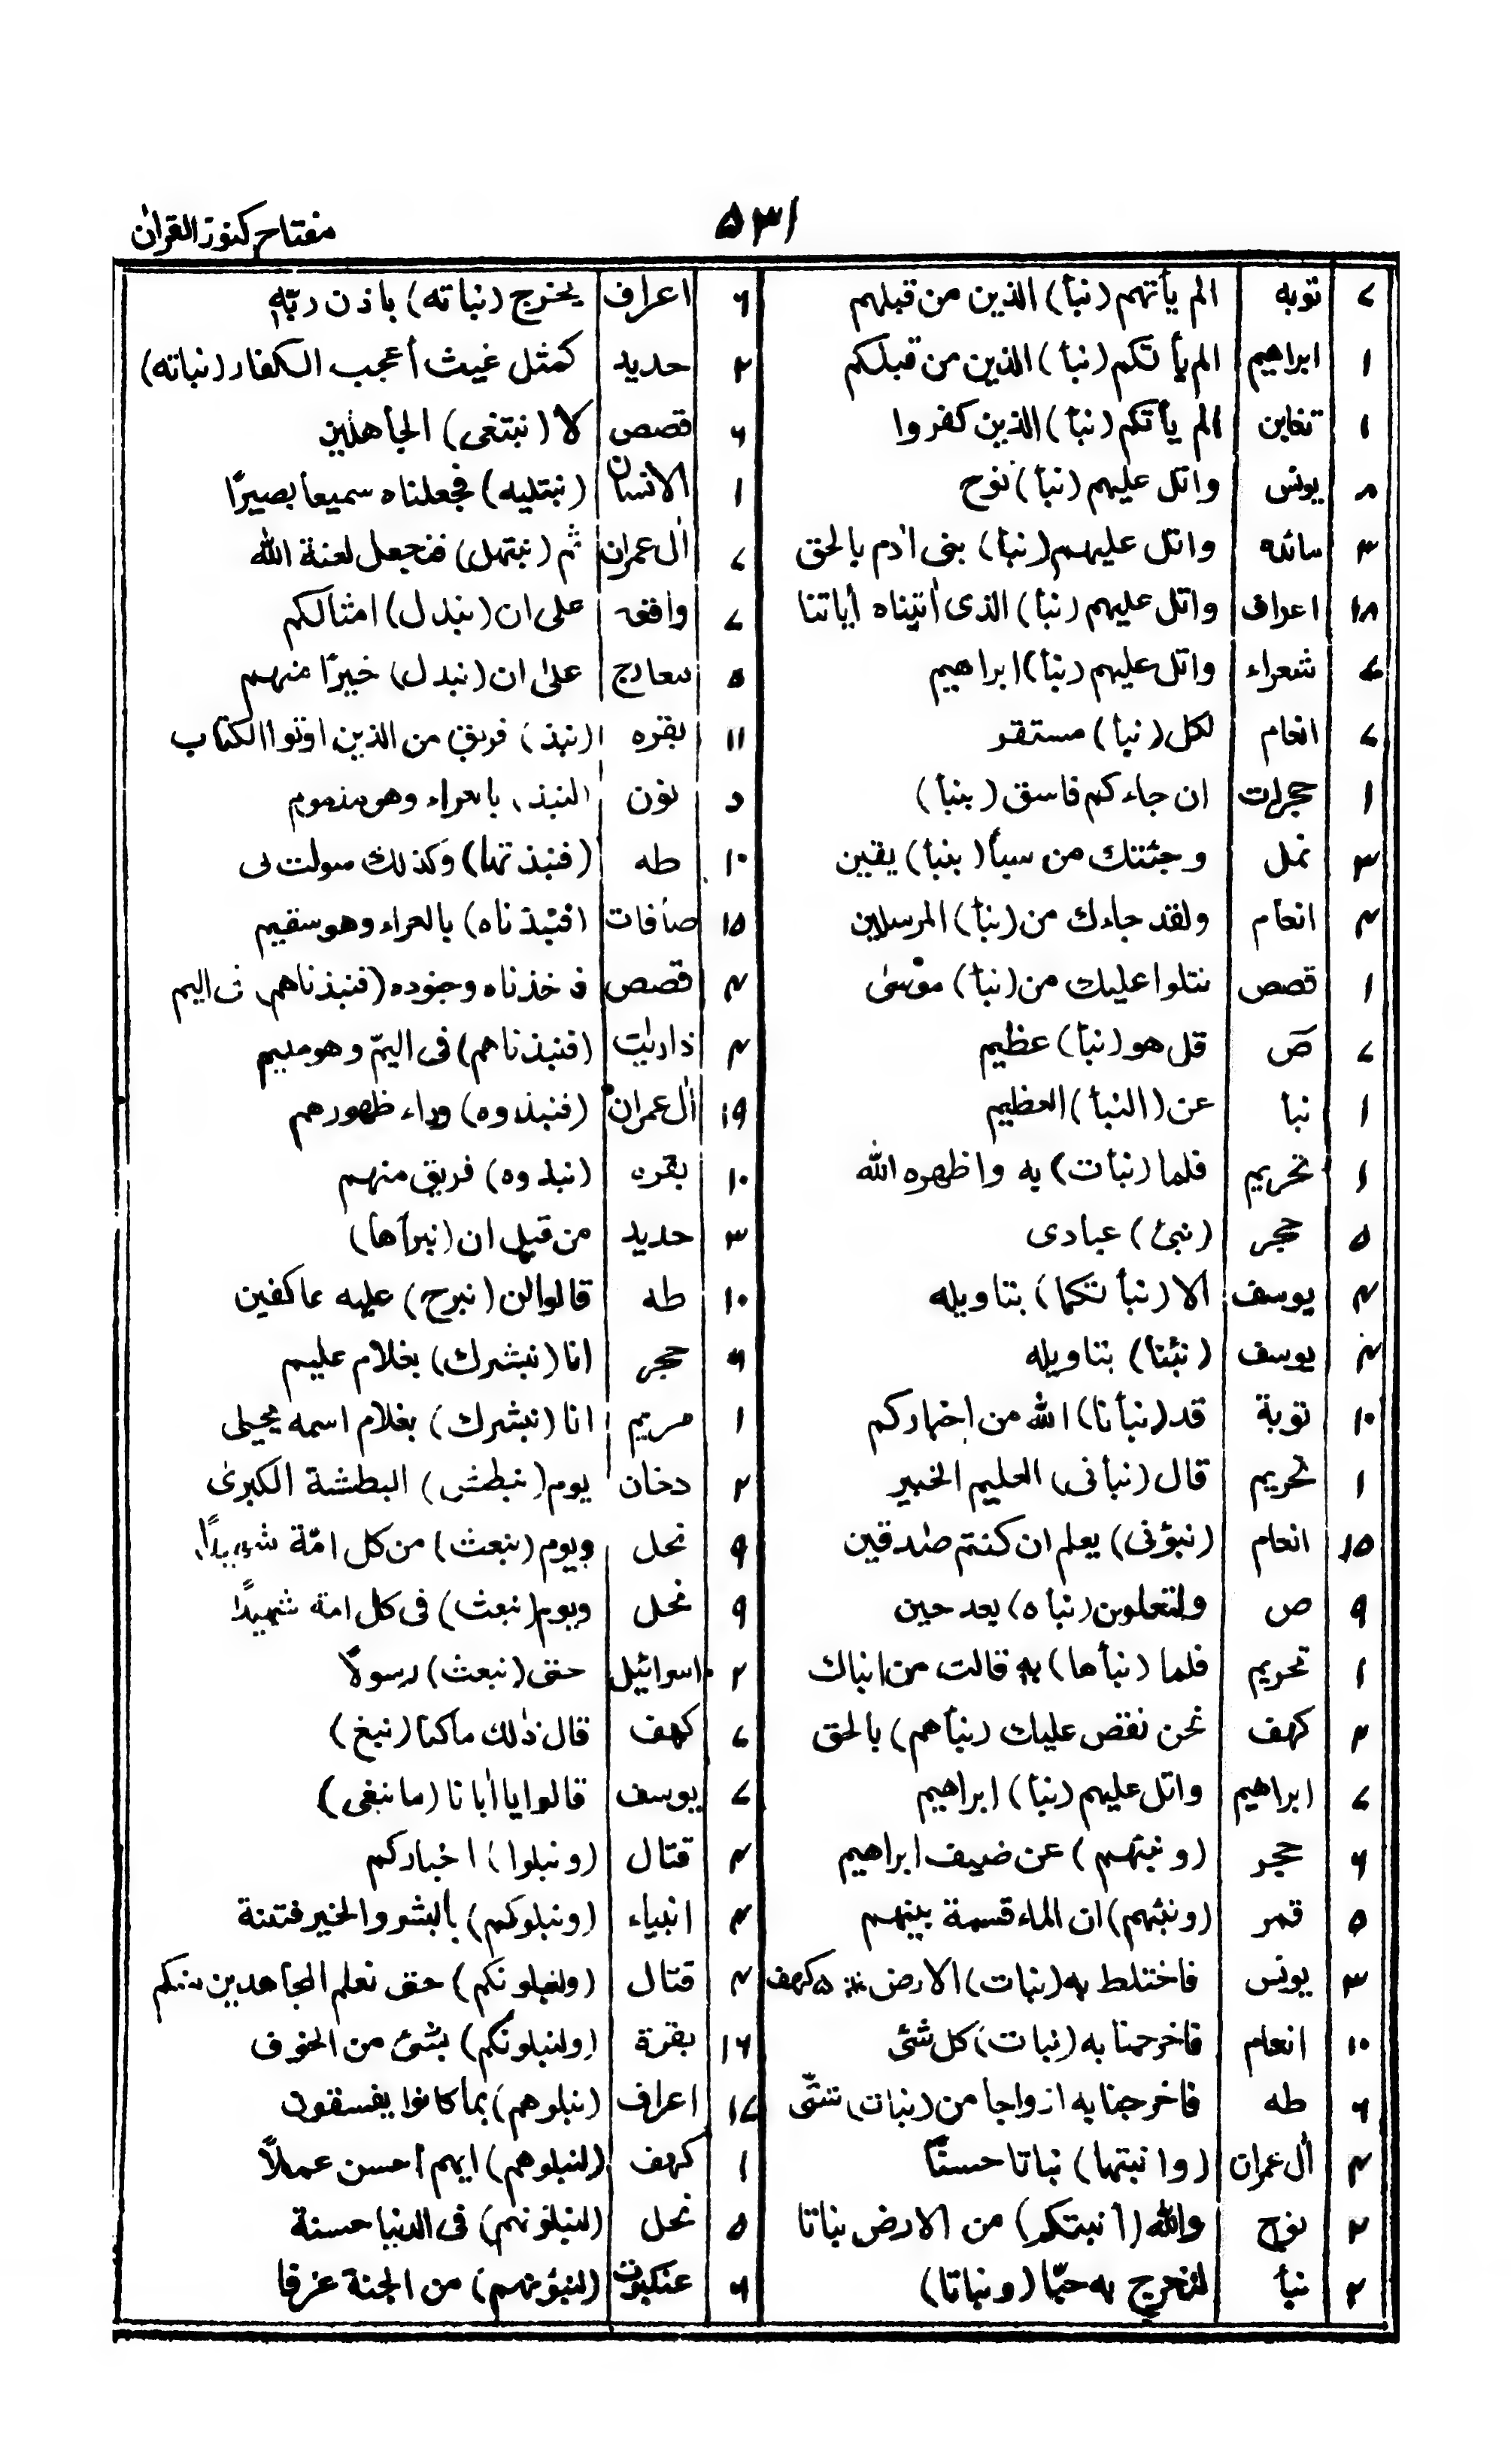 ۵۳۱
مفتاح کنوز القرآن
۷ توبه الم يأتهم (نبأ) الذين من قبلهم
۱ ابراهيم الم يأتكم (نبأ) الذين من قبلكم
۱ تغابن الم يأتكم (نبأ) الذين كفروا
۸ يونس واتل عليهم (نبأ) نوح
۳ مائده واتل عليهم (نبأ) بنى اٰدم بالحق
۱۸ اعراف واتل عليهم (نبأ) الذى اٰتيناه اٰياتنا
شعراء واتل عليهم (نبأ) ابراهيم
۷ انعام لكل (نبأ) مستقر
۱ حجرات ان جاءكم فاسق (بنبأ)
۳ نمل وجئتك من سبأ (بنبأ) يقين
۴ انعام ولقد جاءك من (نبأ) المرسلين
۱ قصص نتلوا عليك من (نبأ) موسٰى
۷ صٓ قل هو (نبأ) عظيم
۱ نبأ عن (النبأ) العظيم
۱ تحريم فلما (نبأت) به واظهره الله
۵ حجر (نبئ) عبادى
۴ يوسف الا (نبأتكما) بتاويله
۴ يوسف (نبئنا) بتاويله
۱۰ توبة قد (نبأنا) الله من اخباركم
۱ تحريم قال (نبأنى) العليم الخبير
۱۵ انعام (نبؤنى) بعلم ان كنتم صٰدقين
۹ ص ولتعلمن (نباه) بعد حين
۱ تحريم فلما (نبأها) به قالت من انباك
۲ كهف نحن نقص عليك (نبأهم) بالحق
۷ ابراهيم واتل عليهم (نبأ) ابراهيم
۶ حجر (ونبئهم) عن ضيف ابراهيم
۵ قمر (ونبئهم) ان الماء قسمة بينهم
۳ يونس فاختلط به (نبات) الارض ۵ كهف
۱۰ انعام فاخرجنا به (نبات) كل شئ
۶ طه فاخرجنا به ازواجا من (نبات) شتّى
۴ اٰل عمران (وانبتها) نباتا حسنًا
۲ نوح والله (انبتكم) من الارض نباتا
۲ نبأ لنخرج به حبّا (ونباتا)
۶ اعراف يخرج (نباته) باذن ربّهٖ
۲ حديد كمثل غيث أعجب الكفار (نباته)
۶ قصص لا (نبتغى) الجاهلين
۱ الانسان (نبتليه) فجعلناه سميعا بصيرًا
۷ اٰل عمران ثم (نبتهل) فنجعل لعنة الله
۷ واقعه على ان (نبدل) امثالكم
۵ معارج علىٰ ان (نبدل) خيرًا منهم
۱۱ بقره (نبذ) فريق من الذين اوتوا الكتاب
نون لنبذ بالعراء وهو مذموم
۱۰ طه (فنبذتها) وكذلك سولت لى
۱۵ صافات (فنبذناه) بالعراء وهو سقيم
۴ قصص فاخذناه وجنوده (فنبذناهم) فى اليم
۴ ذاريٰت (فنبذناهم) فى اليمّ وهو مليم
۱۹ اٰل عمران (فنبذوه) وراء ظهورهم
۱۰ بقره (نبذوه) فريق منهم
۳ حديد من قبل ان (نبرأها)
۱۰ طه قالوا لن (نبرح) عليه عاكفين
حجر انا (نبشرك) بغلام عليم
۱ مريم انا (نبشرك) بغلام اسمه يحيٰى
۲ دخان يوم (نبطش) البطشة الكبرىٰ
۹ نحل ويوم (نبعث) من كل امّة شهيدًا
۹ نحل ويوم (نبعث) فى كل امة شهيدًا
۲ اسرائيل حتى (نبعث) رسولًا
۷ كهف قال ذٰلك ماكنا (نبغ)
۷ يوسف قالوا يا اٰبانا (ما نبغى)
۴ قتال (ونبلوا) اخباركم
۴ انبياء (ونبلوكم) بالبشر والخير فتنة
۴ قتال (ولنبلونكم) حتى نعلم المجاهدين منكم
۱۶ بقرة (ولنبلونكم) بشئ من الخوف
۱۷ اعراف (نبلوهم) بما كانوا يفسقون
۱ كهف (لنبلوهم) ايهم احسن عملًا
۵ نحل (لنبلؤنهم) فى الدنيا حسنة
۶ عنكبوت (لنبؤنهم) من الجنة غرفا